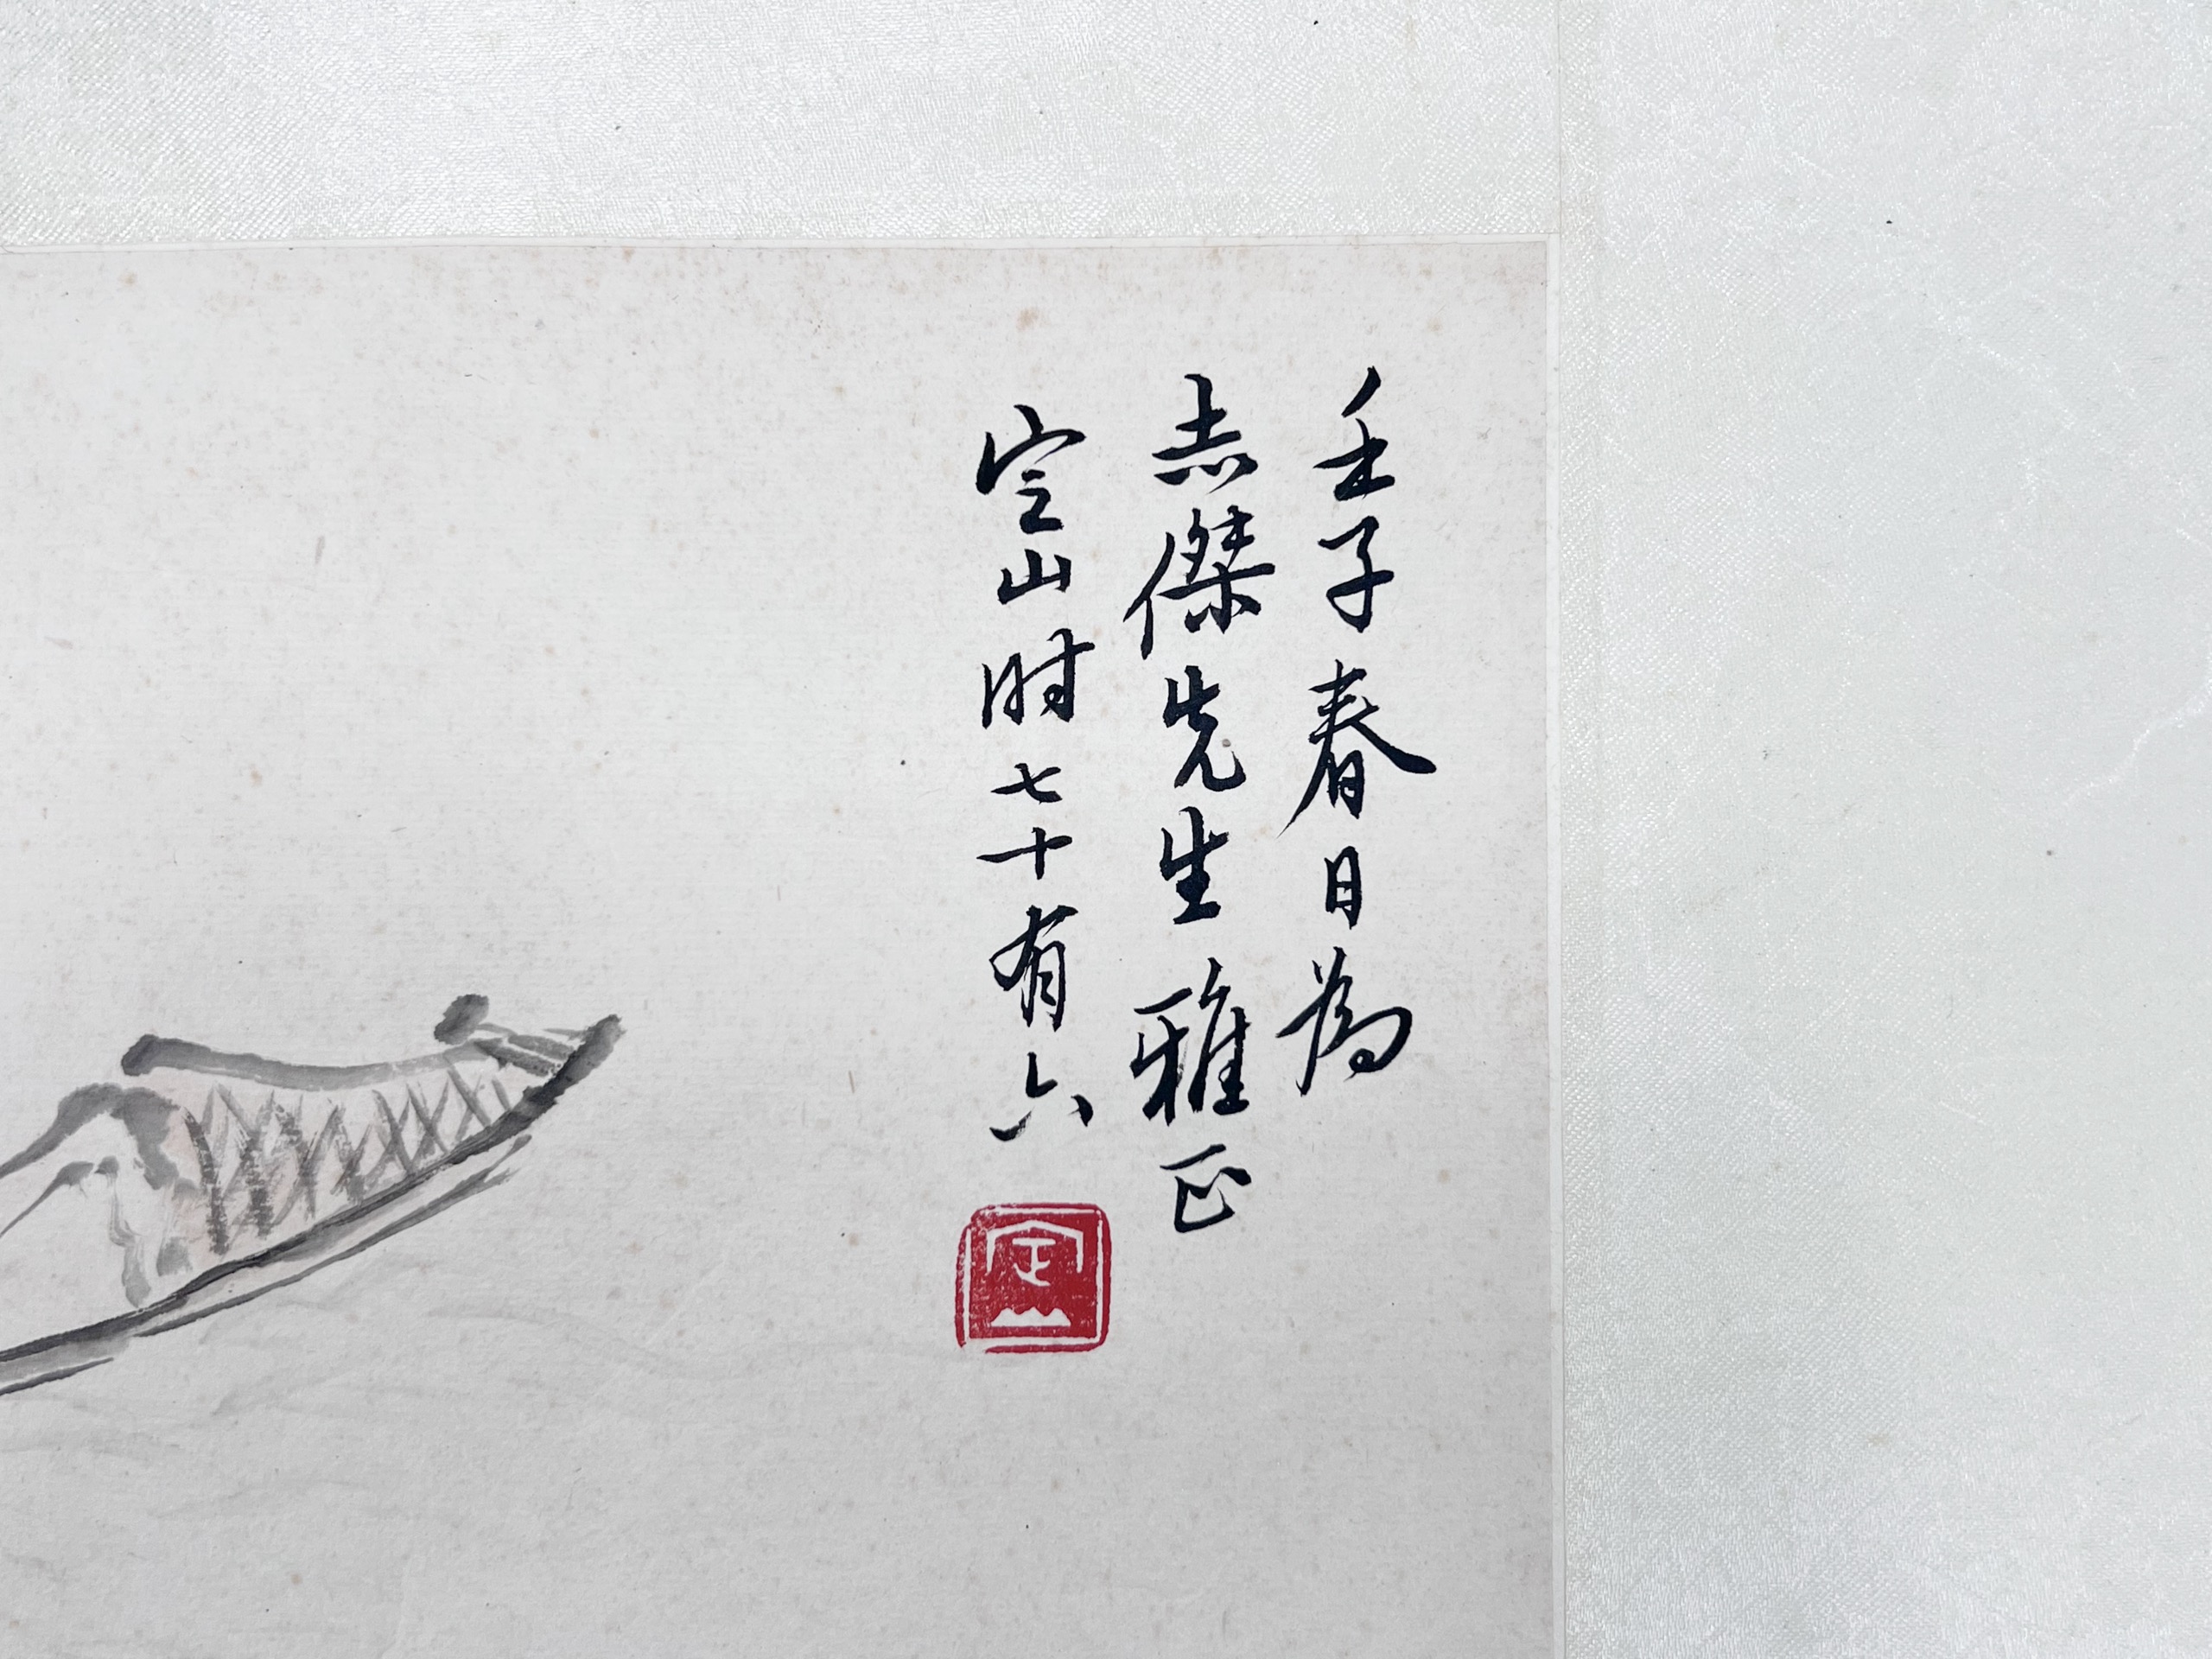 壬子春日為
志傑先生雅正
定山时七十有六
定山